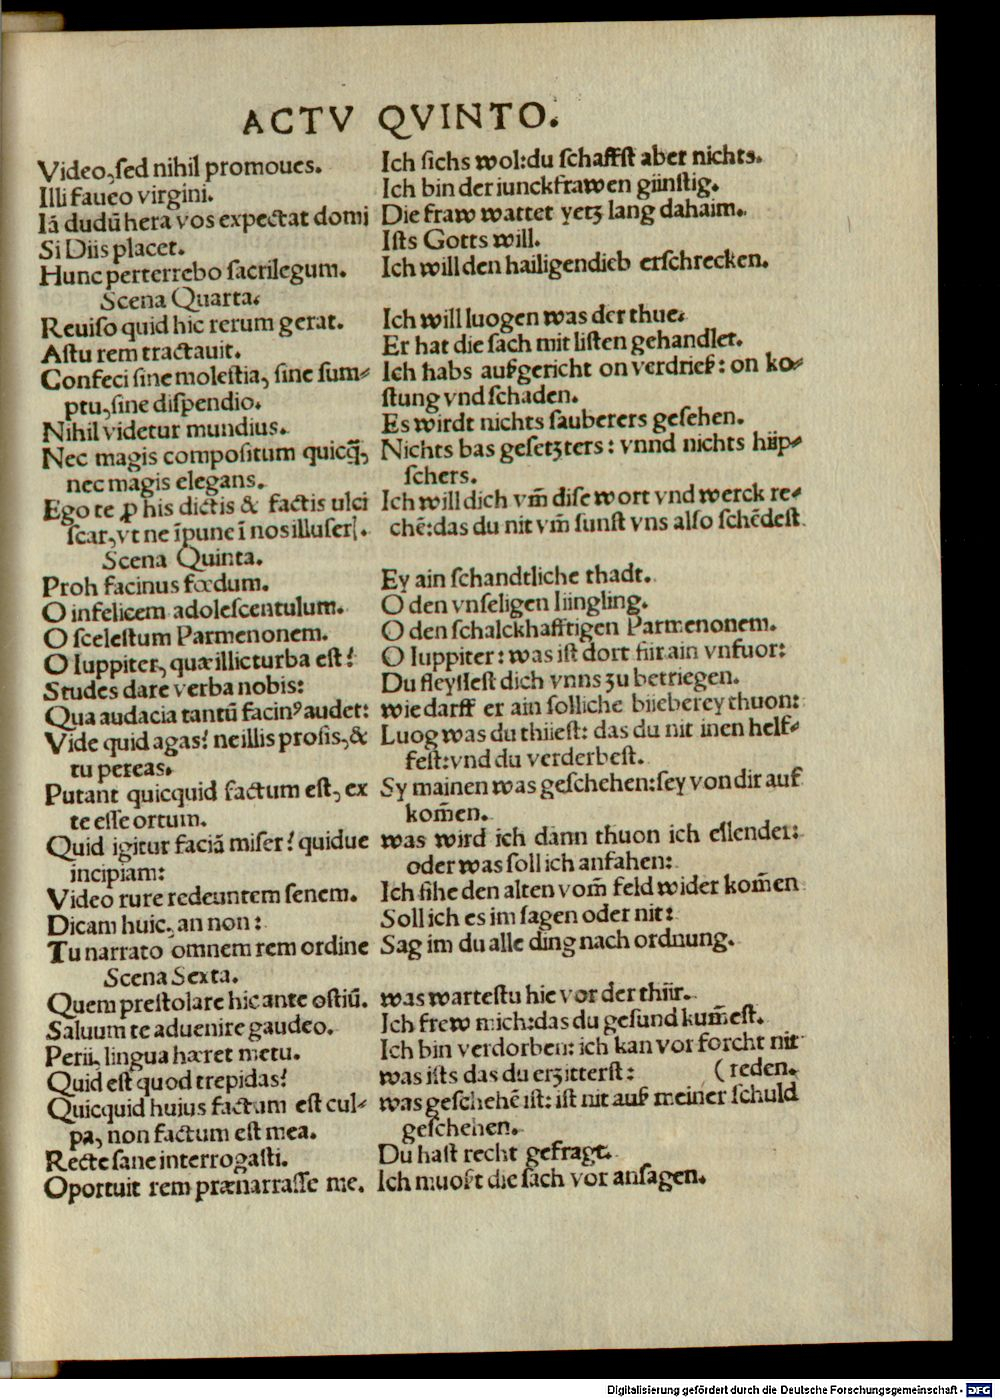 ACTV QVINTO.
Video, sed nihil promoues. Ich sichs wol: du schaffst aber nichts.
Illi faueo virgini. Ich bin der iunckfrawen günstig.
Iã dudũ hera vos expectat domi Die fraw wattet yetz lang dahaim.
Si Diis placet. Ists Gotts will.
Hunc perterrebo sacrilegum. Ich will den hailigendieb erschrecken.
Scena Quarta.
Reuiso quid hic rerum gerat. Ich will luogen was der thue.
Astu rem tractauit. Er hat die sach mit listen gehandlet.
Confeci sine molestia, sine sum- Ich habs außgericht on verdrieß: on ko-
ptu, sine dispendio. stung vnd schaden.
Nihil videtur mundius. Es wirdt nichts sauberers gesehen.
Nec magis compositum quicq̃, Nichts bas gesetzters: vnnd nichts hüp-
nec magis elegans. schers.
Ego te ꝓ his dictis & factis ulci Ich will dich vm̃ dise wort vnd werck re-
scar, vt ne ĩpune ĩ nos illuser|. chẽ: das du nit vm̃ sunst vns also schẽdest
Scena Quinta.
Proh facinus fœdum. Ey ain schandtliche thadt.
O infelicem adolescentulum. O den vnseligen Iüngling.
O scelestum Parmenonem. O den schalckhafftigen Parmenonem.
O Iuppiter, quæ illic turba est? O Iuppiter: was ist dort für ain vnfuor:
Studes dare verba nobis: Du fleyssest dich vnns zu betriegen.
Qua audacia tantũ facinꝰ audet: wie darff er ain solliche büeberey thuon:
Vide quid agas? ne illis prosis, & Luog was du thüest: das du nit inen helf-
tu pereas. fest: vnd du verderbest.
Putant quicquid factum est, ex Sy mainen was geschehen: sey von dir auß
te esse ortum. kom̃en.
Quid igitur faciã miser? quidue was wird ich dann thuon ich ellender:
incipiam: oder was soll ich anfahen:
Video rure redeuntem senem. Ich sihe den alten vom̃ feld wider kom̃en
Dicam huic, an non: Soll ich es im sagen oder nit:
Tu narrato omnem rem ordine Sag im du alle ding nach ordnung.
Scena Sexta.
Quem prestolare hic ante ostiũ. was wartestu hie vor der thür.
Saluum te aduenire gaudeo. Ich frew mich: das du gesund kum̃est.
Perii, lingua hæret metu. Ich bin verdorben: ich kan vor forcht nit
Quid est quod trepidas? was ists das du erzitterst: (reden.
Quicquid huius factum est cul- was geschehẽ ist: ist nit auß meiner schuld
pa, non factum est mea. geschehen.
Recte sane interrogasti. Du hast recht gefragt.
Oportuit rem prænarrasse me. Ich muoßt die sach vor ansagen.
Digitalisierung gefördert durch die Deutsche Forschungsgemeinschaft - DFG